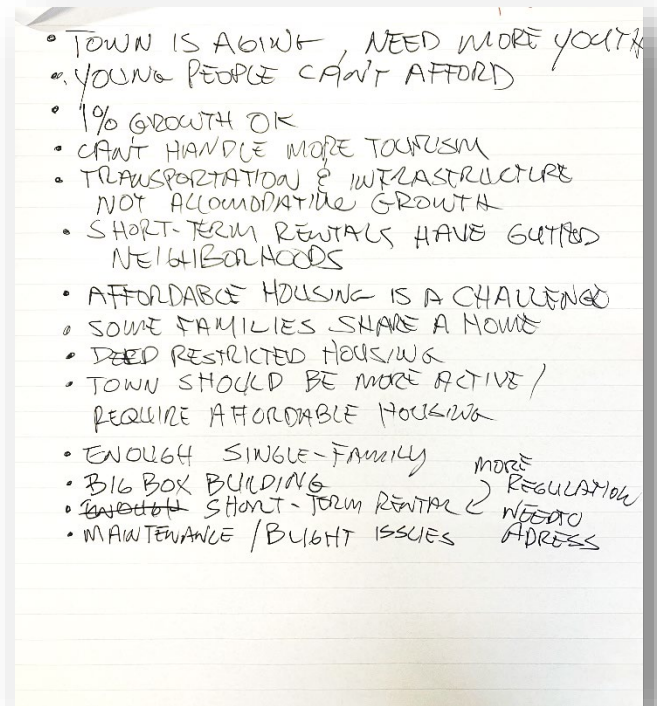 • TOWN IS AGING, NEED MORE YOUTH
• YOUNG PEOPLE CAN'T AFFORD
• 1% GROWTH OK
• CAN'T HANDLE MORE TOURISM
• TRANSPORTATION & INFRASTRUCTURE
NOT ACCOMODATING GROWTH
• SHORT-TERM RENTALS HAVE GUTTED
NEIGHBORHOODS
• AFFORDABLE HOUSING IS A CHALLENGE
• SOME FAMILIES SHARE A HOME
• DEED RESTRICTED HOUSING
• TOWN SHOULD BE MORE ACTIVE/
REQUIRE AFFORDABLE HOUSING
• ENOUGH SINGLE-FAMILY
• BIG BOX BUILDING
• ENOUGH SHORT-TERM RENTAL
• MAINTENANCE/BLIGHT ISSUES
MORE
REGULATION
NEED TO
ADRESS